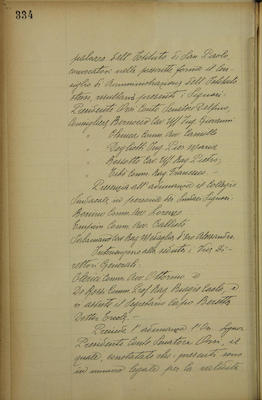 334
palazzo dell'Istituto di San Paolo,
convocatosi nelle prescritte forme il Con
siglio di Amministrazione dell'Istituto
stesso, risultano presenti i Signori:
Presidente Orsi Conte Senatore Delfino,
Consiglieri Cav. Uff. Ing. Giovanni
" Chiesa Comm. Avv. Carmelo
" Ing. Pier Maria
" Cav. Uff. Rag. Pietro;
" Comm. Rag. Francesco. -
Presenzia all'adunanza il Collegio
Sindacale in persona dei Sindaci Signori:
Comm. Avv. Lorenzo
Comm. Avv. Battista
Cav. Rag. Alessandro.
Intervengono alla seduta i Vice Di-
rettori Generali:
Comm. Avv. Ottorino e
De Comm. Prof. Rag. Carlo, e
vi assiste il Segretario Capo
Dottor Ercole. -
Presiede l'adunanza l'On. Signor
Presidente Conte Senatore Orsi, il
quale, constatato che i presenti sono
in numero legale per la validità